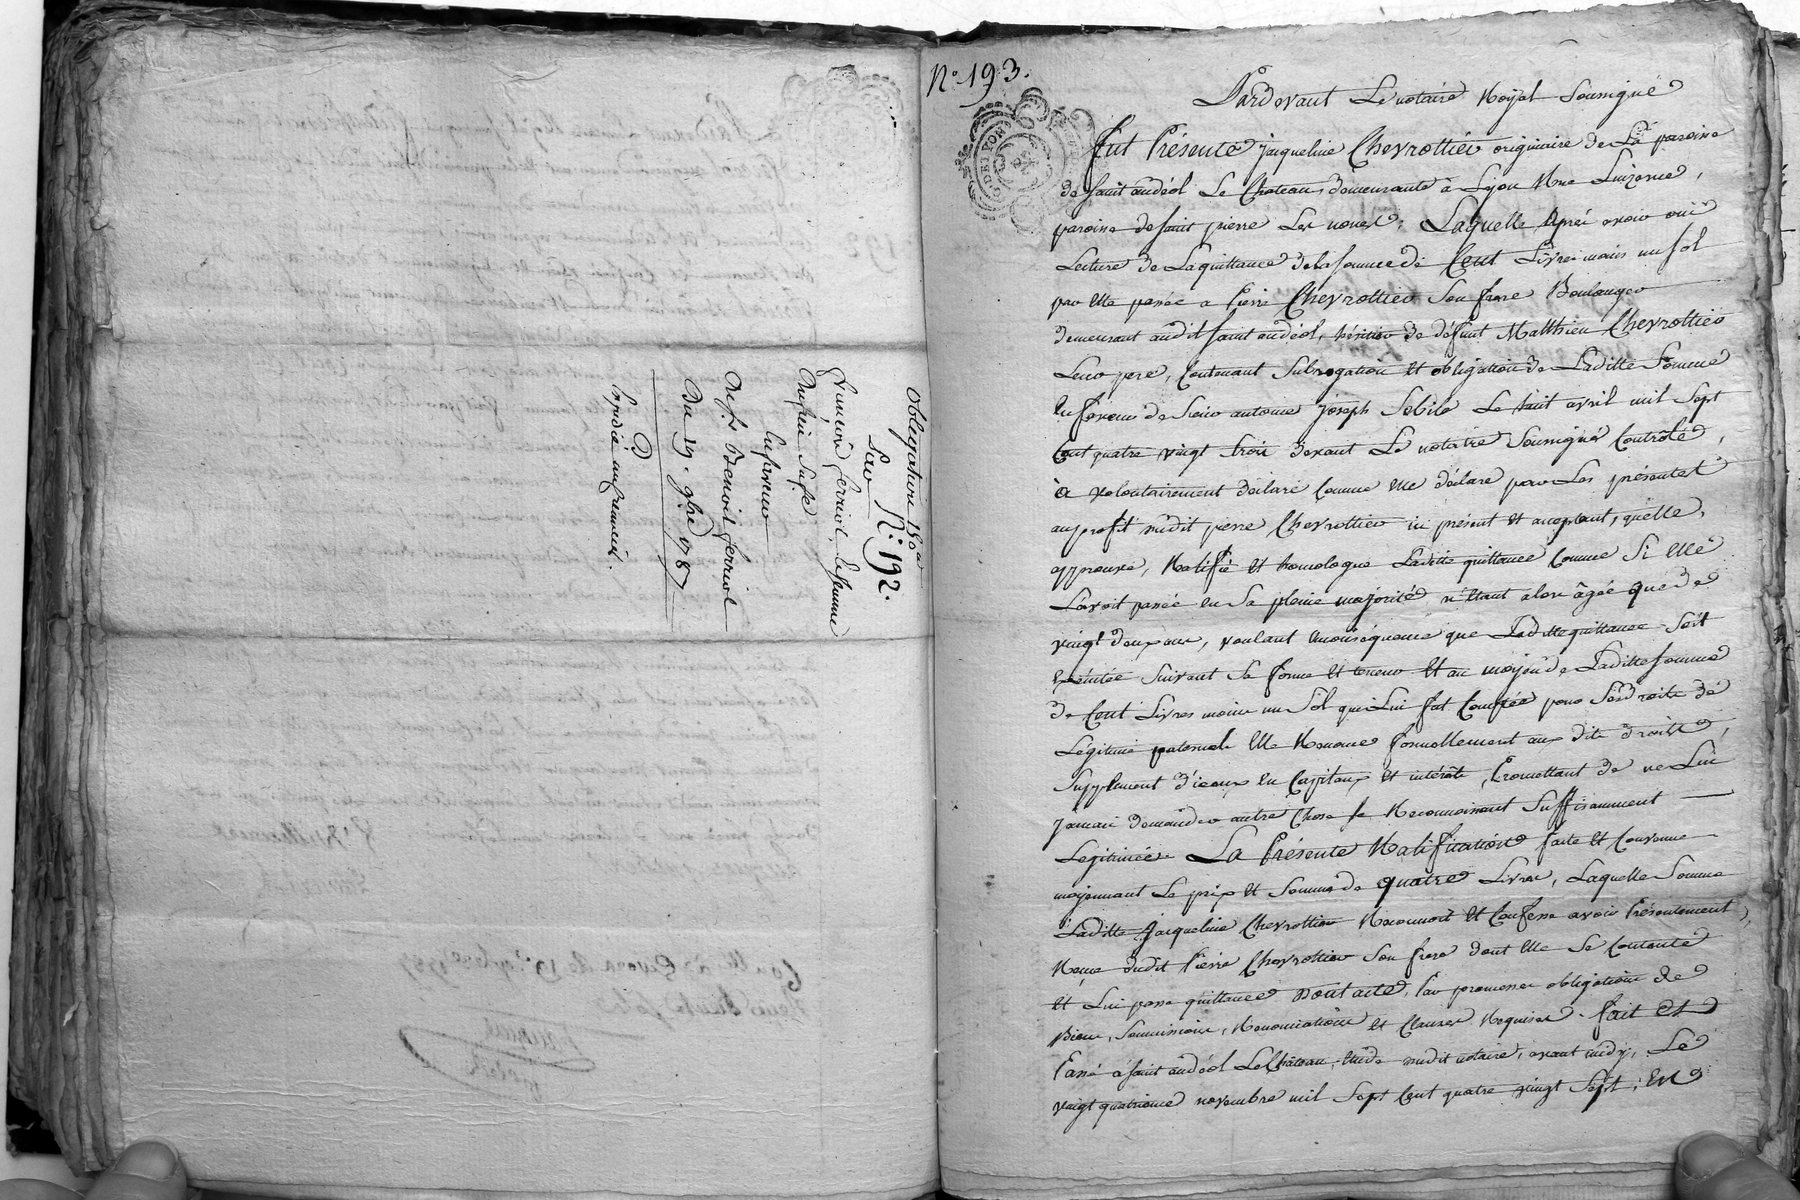 Obligature 150#
N.° 192.
Par
françois ferriol, & femme
Enfaveur
De s.r Benoit ferriol
Du 19. 9bre 1787
N.° 193.
G.DE LYON
Pardevant Le notaire Royal Soussigné
fut Présente jacqueline Chevrottier originaire de La paroisse
de saint andéol Le Chateau, demeurante à Lyon Rue Luizerne,
paroisse de saint pierre Les nonest, Laquelle après avoir oui
Lecture de La quittance de la somme de Cent Livres moins un sol
par Elle passée a Pierre Chevrottier Son frere Boulanger
demeurant audit saint andéol, héritier de défunt Matthieu Chevrottier
Leur pere, Contenant Subrogation Et obligation de Laditte Somme
En faveur de Sieur antoine joseph Sebile Le huit avril mil Sept
Cent quatre vingt trois devant Le notaire Soussigné Contrôlé,
a volontairement déclaré Comme Elle déclare par Les présentes
au profit dudit pierre Chevrottier ici présent Et acceptant, qu'elle
approuve, Ratifie Et homologue Laditte quittance Comme Si Elle
L'avoit passée en Sa pleine majorité n'étant alors âgée que de
vingt deux ans, voulant En conséquence que Laditte quittance Soit
Exécutée Suivant Sa forme Et teneur Et au moyen de Laditte somme
de Cent Livres moins un Sol qui Lui fut Comptée pour Ses droits de
Légitime paternels Elle Renonce formellement aux dits droits,
Supplement d'iceux En Capitaux Et intérêts, Promettant de ne Lui
jamais demander autre Chose Se Reconnoissant Suffisamment
Legitimée. La Présente Ratification faite Et Convenue
moyennant Le prix Et Somme de quatre Livres, Laquelle Somme
Laditte Jacqueline Chevrottier Reconnoit Et Confesse avoir Présentement
Reçue dudit Pierre Chevrottier Son frere dont Elle Se Contente
Et Lui passe quittance Dont acte, Par promesses obligation de
Biens, Soumissions, Renonciations Et Clauses Requises. fait Et
Passé à saint andéol Le Château, Etude dudit notaire, avant midy, Le
vingt quatrieme novembre mil Sept Cent quatre vingt Sept, En